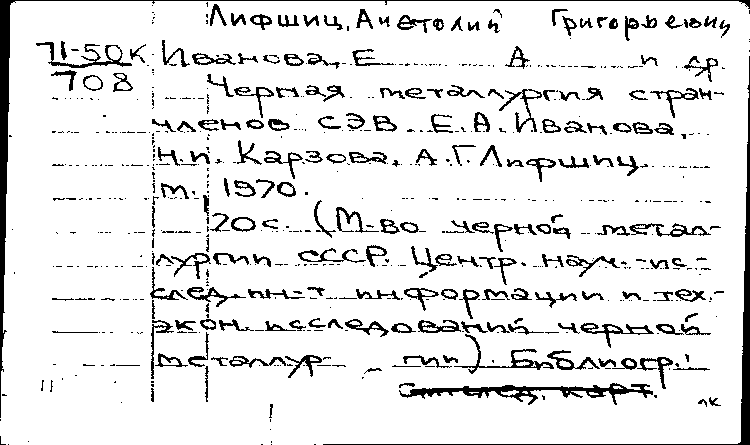 Лифшиц, Анатолий Григорьевич
71-50К Иванова, Е А и др.
708 Черная металлургия стран-
членов СЭВ. Е.А. Иванова,
Н.И. Карзова, А.Г. Лифшиц.
М., 1970.
20с. (М-во черной метал-
лургии СССР. Центр. науч.-ис-
след. ин-т информации и тех.-
экон. исследований черной
металлур- гии). Библиогр.:
след. карт.
лк